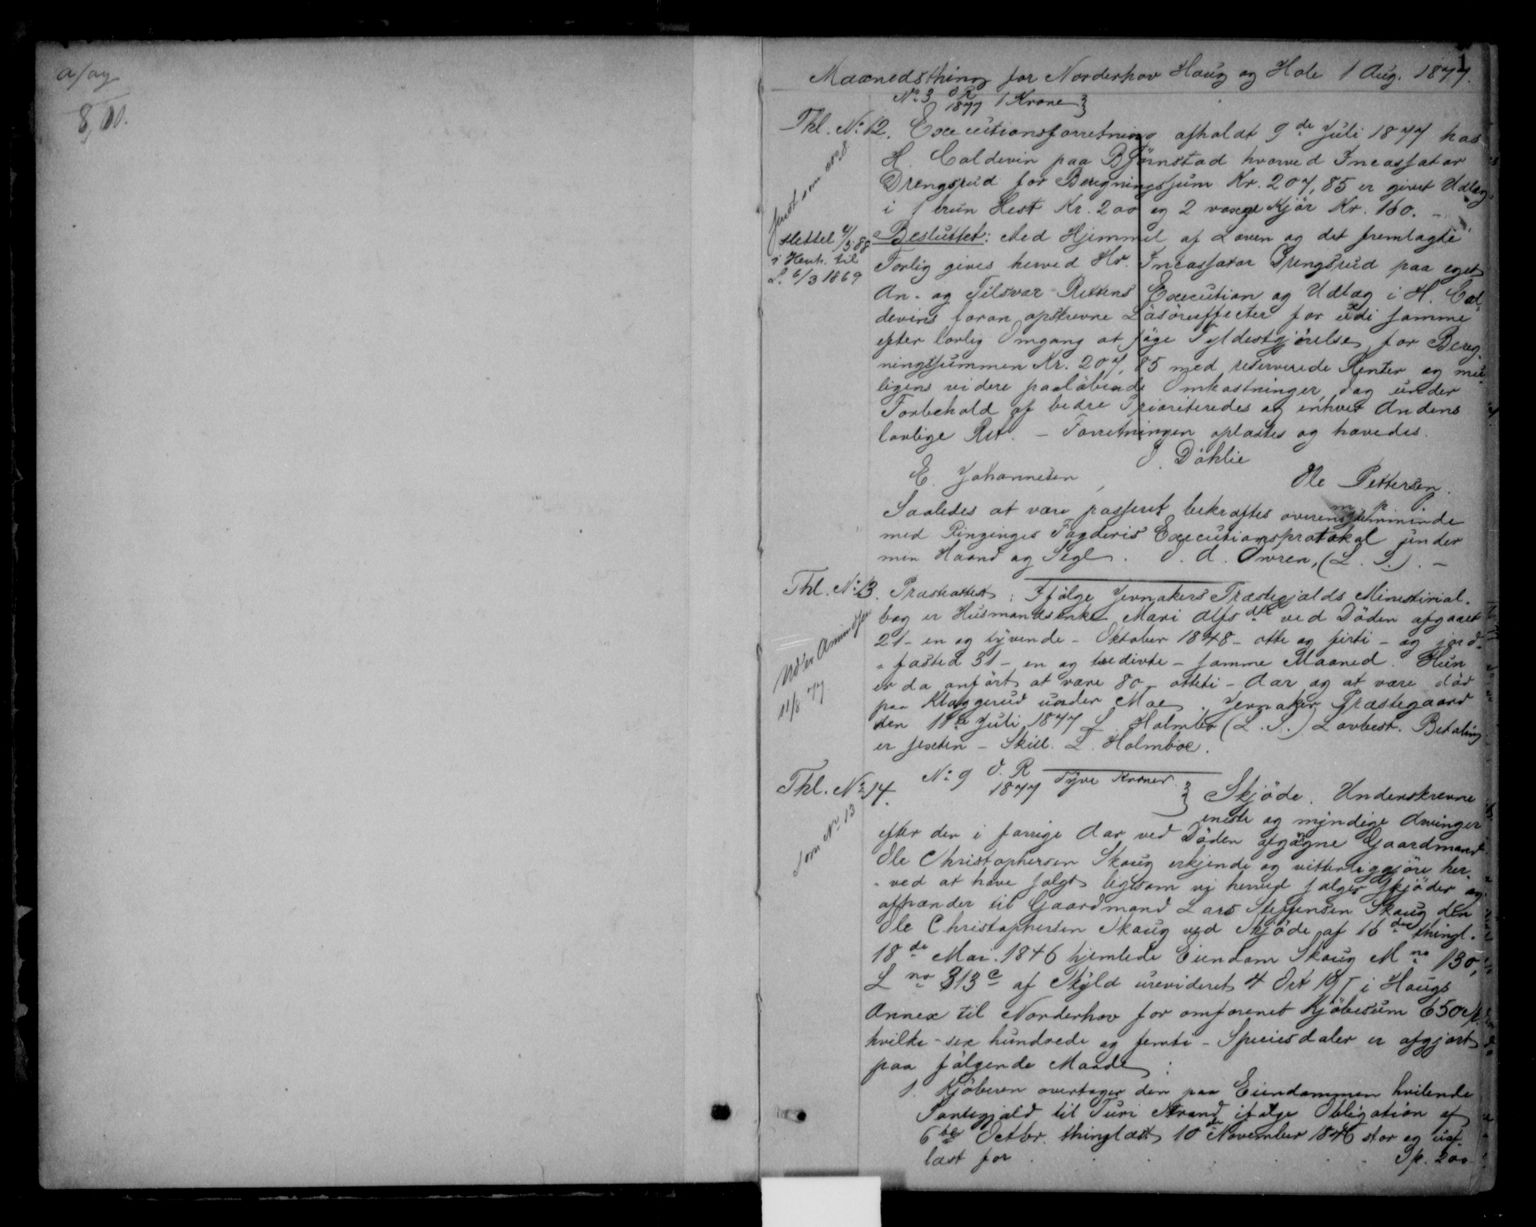 a/ay
8,00.
1
Maanedsthing for Norderhov Haug og Hole 1 Aug. 1877.
No 3 O R 1877 1 Krone
Thl. No 12. Executionsforretning afholdt 9de Juli 1877 hos
H. Coldevin paa Bjørnstad hvorved Incassator
Drengsrud for Beregningssum Kr. 207,85 er givet Udlæg
i 1 brun Hest Kr. 200 og 2 voxne Kjör Kr. 160. –
Besluttet: Med Hjemmel af Loven og det fremlagte
Forlig gives herved Hr. Incassator Drengsrud paa eget
An- og Tilsvar Rettens Execution og Udlæg i H. Col-
devins foran opskrevne Løsöreeffecter for udi samme
efter lovlig Omgang at söge Fyldestgjörelse for Bereg-
ningssummen Kr. 207,85 med reserverede Renter og mu-
ligens videre paalöbende Omkostninger, dog under
Forbehold af bedre Prioriteredes og enhver Andens
lovlige Ret. – Forretningen oplæstes og hævedes.
J. Döhlie
E. Johannesen Ole Pettersen.
Saaledes at være passeret bekræftes overensstemmende
med Ringeriges Fogderis Executionsprotokol under
min Haand og Segl. O. A. Owren, (L. S.). –
slettet 4/5 88
i Henh. til
L. 6/3 1869
Thl. No 13. Præsteattest: Ifølge Jevnakers Præstegjelds Ministerial-
bog er Husmandsenke Mari Alfsdtr ved Döden afgaaet
21 – en og tyvende – Oktober 1848 – otte og firti – og jord-
fæsted 31 – en og tredivte – samme Maaned. Hun
er da anfört at være 80 – otteti – Aar og at være död
paa Klæggerud under Moe. Jevnaker Præstegaard
den 11te Juli 1877 L. Holmboe (L. S.) Lovbest. Betaling
er sexten – Skill. L. Holmboe.
11/8 77
Thl. No 14. No 9 O. R 1877 Tyve Kroner
Skjöde. Underskrevne
eneste og myndige Arvinger
efter den i forrige Aar ved Döden afgangne Gaardmand
Ole Christophersen Skoug erkjende og vitterliggjöre her-
ved at have solgt ligesom vi herved sælger skjöder og
afhænder til Gaardmand Lars Steffensen Skoug den
Ole Christophersen Skoug ved Skjöde af 16de thingl.
18de Mai 1846 hjemlede Eiendom Skoug M no 130,
L no 313 c af Skyld urevideret 4 Ort i Haugs
Annex til Norderhov for omforenet Kjöbesum 650 Sp.
hvilke – sex hundrede og femti – Speciesdaler er afgjort
paa fölgende Maade:
1. Kjöberen overtager den paa Eiendommen hvilende
Pantegjæld til Turi Strand ifölge Obligation af
6te Octbr. thinglæst 10de November 1846 stor og uaf-
læst for . . . . Sp. 200
Som No 13